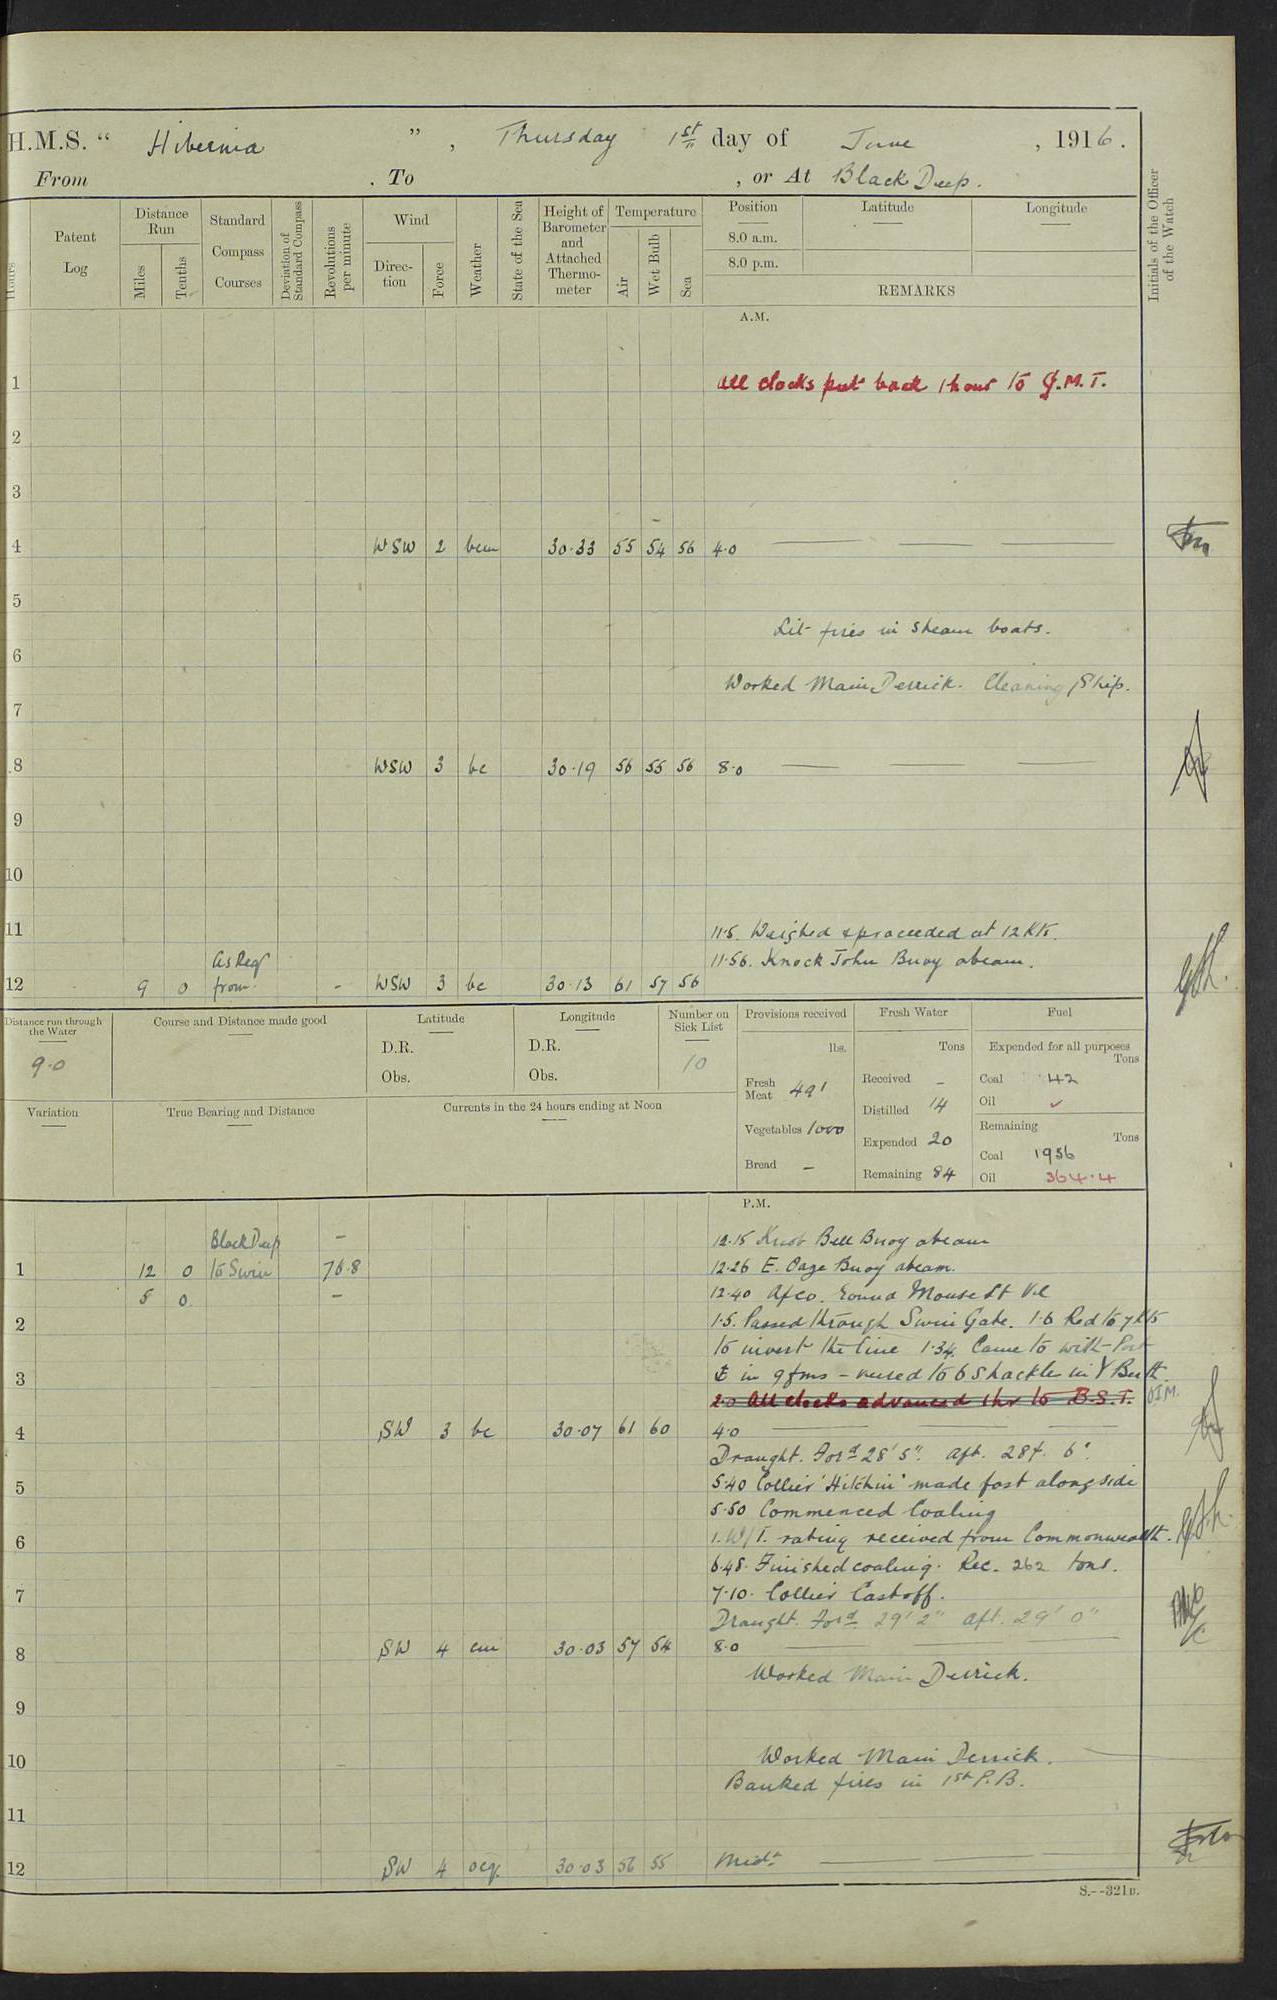 H.M.S. “ Hibernia ” , Thursday 1st day of June , 1916.
From . To , or At Black Deep.
Hours
Patent Log
Distance Run
Miles
Tenths
Standard Compass Courses
Deviation of Standard Compass
Revolutions per minute
Wind
Direction
Force
Weather
State of the Sea
Height of Barometer and Attached Thermometer
Temperature
Air
Wet Bulb
Sea
Position
8.0 a.m.
8.0 p.m.
Latitude
Longitude
REMARKS
Initials of the Officer of the Watch
A.M.
1 All clocks put back 1 hour to G.M.T.
2
3
4 WSW 2 bcm 30.33 55 54 56 4.0
5
Lit fires in steam boats.
6
Worked Main Derrick. Cleaning Ship.
7
8 WSW 3 bc 30.19 56 55 56 8.0
9
10
11 11.5. Weighed & proceeded at 12 Kts.
As Req 11.56. Knock John Buoy abeam.
12 9 0 from - WSW 3 bc 30.13 61 57 56
Distance run through the Water
9.0
Course and Distance made good
Latitude
D.R.
Obs.
Longitude
D.R.
Obs.
Number on Sick List
10
Provisions received
lbs.
Fresh Meat 491
Vegetables 1000
Bread -
Fresh Water
Tons
Received -
Distilled 14
Expended 20
Remaining 84
Fuel
Expended for all purposes
Tons
Coal 42
Oil ✓
Remaining
Tons
Coal 1956
Oil 364.4
Variation
True Bearing and Distance
Currents in the 24 hours ending at Noon
P.M.
Black Deep - 12.15 Knob Bell Buoy abeam
1 12 0 to Swin 76.8 12.26 E. Oaze Buoy abeam.
5 0 - 12.40 A/co. round Mouse Lt Vl
2 1.5. Passed through Swin Gate. 1.6 Red to 7 Kts
to invert the line 1.34. Came to with Port
3 in 9 fms - veered to 6 shackles in Y Berth.
2.0 All clocks advanced 1 hr to B.S.T.
4 SW 3 bc 30.07 61 60 4.0
Draught. Ford 28' 5". Aft. 28f. 6".
5 5.40 Collier 'Hitchin' made fast alongside
5.50 Commenced Coaling
6 1. W/T. rating received from Commonwealth.
6.48. Finished coaling. Rec. 262 tons.
7 7.10. Collier Cast off.
Draught. Ford. 29' 2" aft. 29' 0"
8 SW 4 cm 30.03 57 54 8.0
Worked Main Derrick.
9
10 Worked Main Derrick.
Banked fires in 1st P.B.
11
12 SW 4 ocq. 30.03 56 55 Midt
S.--321B.